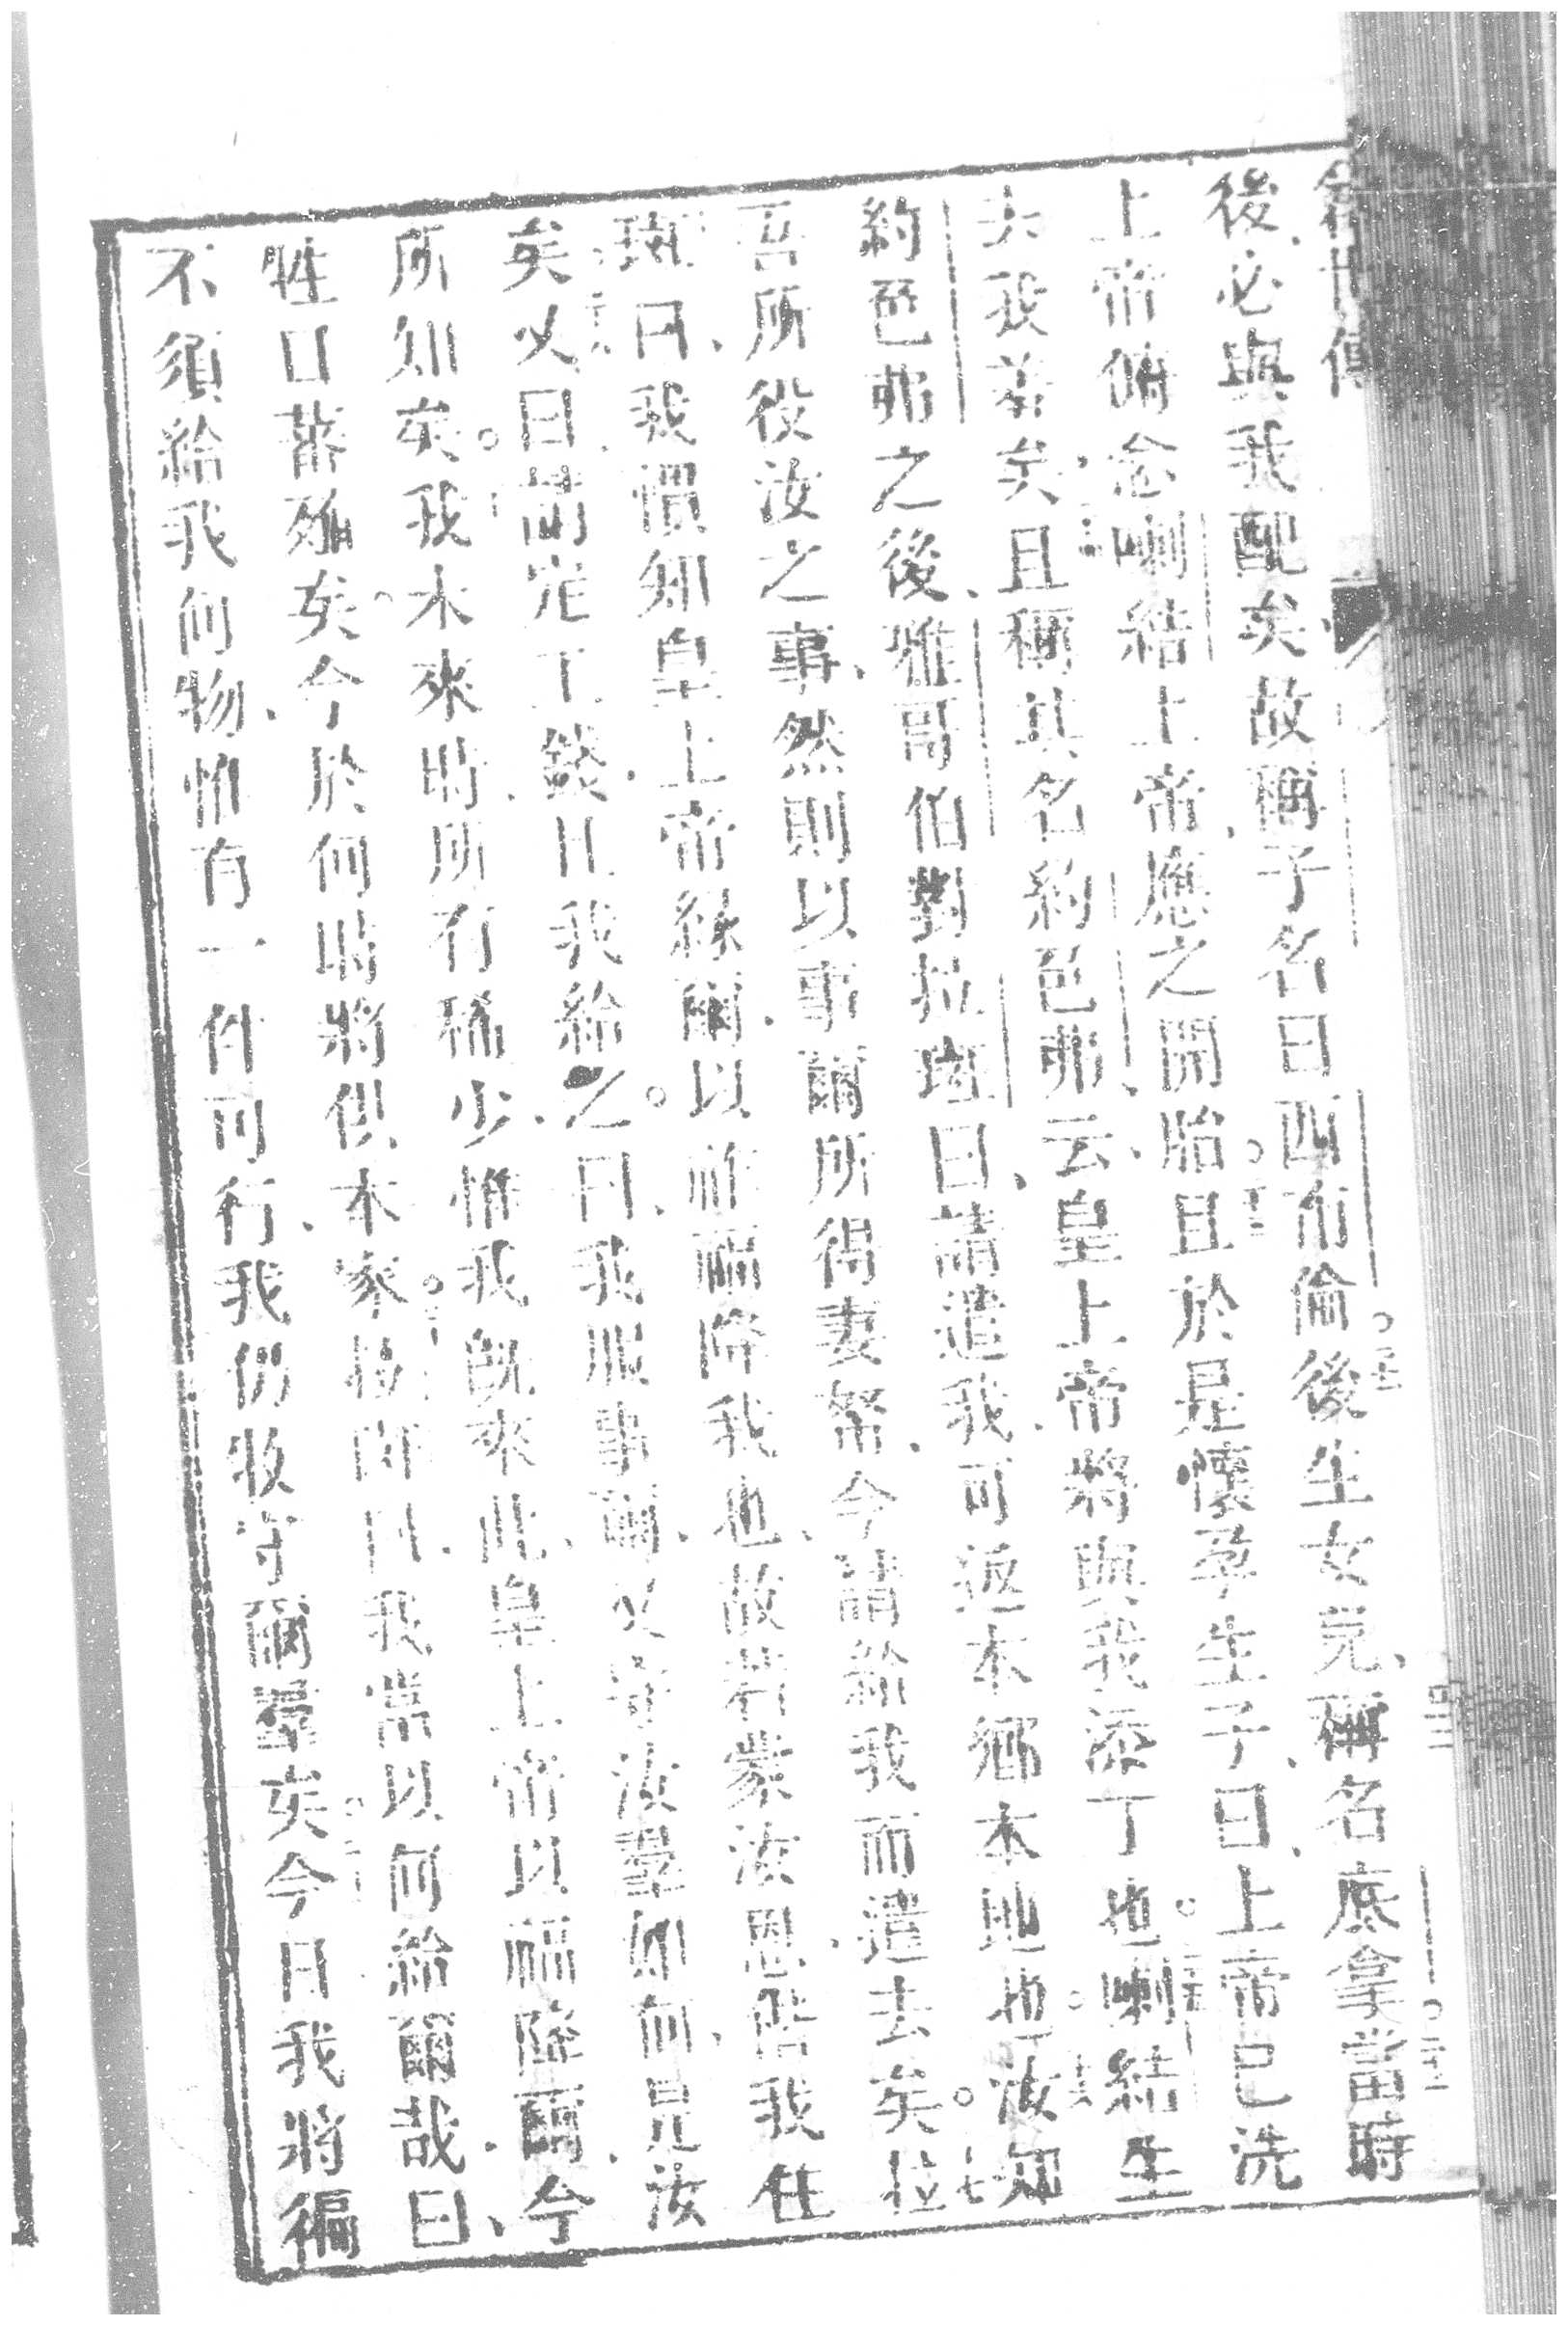 後必與我配矣故稱子名曰西布倫後生女兒稱名底拿當時
上帝俯念喇結上帝應之開胎且於是懷孕生子曰上帝已洗
去我羞矣且稱其名約色弗云皇上帝將與我添丁也喇結生
約色弗之後雅哥伯對拉班曰請遣我可返本鄉本地也汝知
吾所役汝之事然則以事爾所得妻帑今請給我而遣去矣拉
班曰我慣知皇上帝緣爾以祉福降我也故若蒙汝恩偕我住
矣又曰請定工錢且我給之曰我服事爾又守汝羣如何見汝
所知矣我未來時所有稀少惟我既來此皇上帝以福陞爾今
牲口蕃殖矣今於何時將供本家拉班曰我當以何給爾哉曰
不須給我何物惟有一件可行我仍牧守爾羣矣今日我將徧